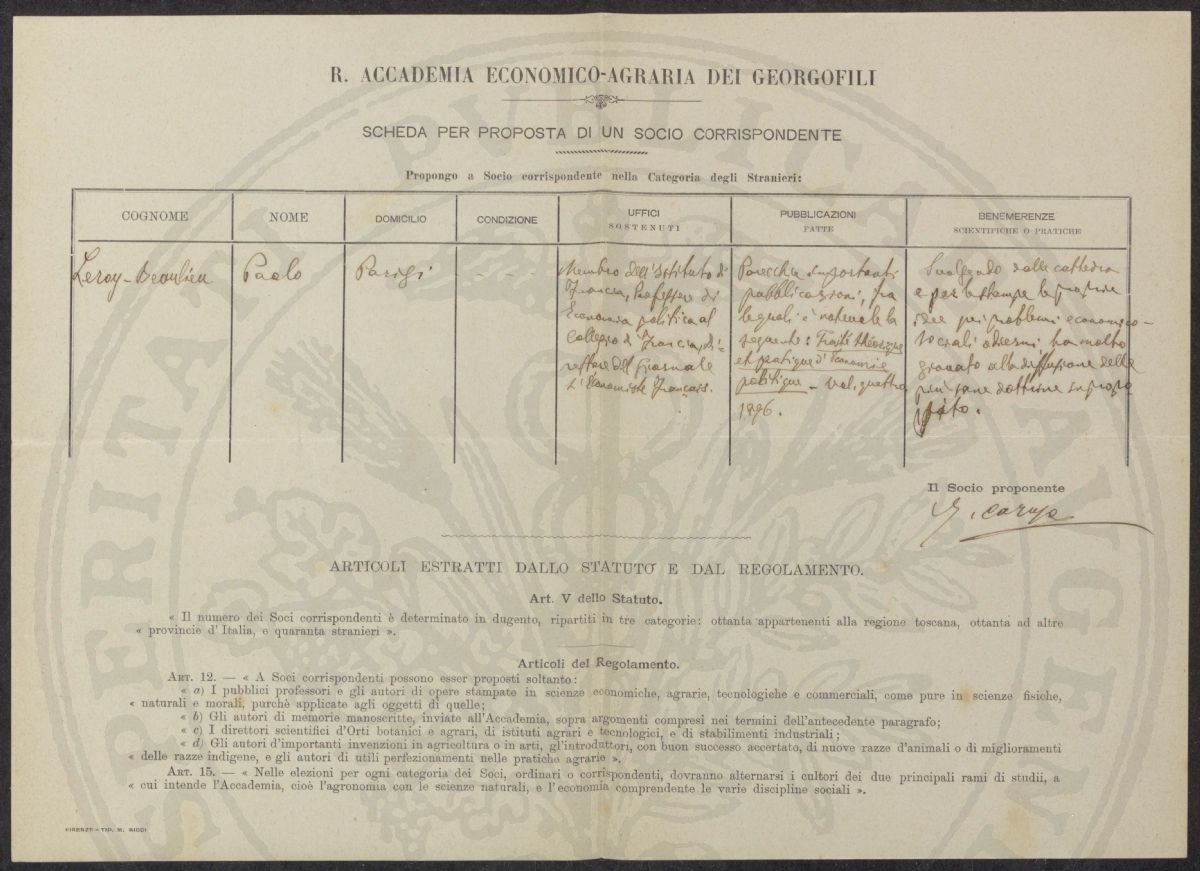 R. ACCADEMIA ECONOMICO-AGRARIA DEI GEORGOFILI
SCHEDA PER PROPOSTA DI UN SOCIO CORRISPONDENTE
Propongo a Socio corrispondente nella Categoria degli Stranieri:
COGNOME
NOME
DOMICILIO
CONDIZIONE
UFFICI
SOSTENUTI
PUBBLICAZIONI
FATTE
BENEMERENZE
SCIENTIFICHE O PRATICHE
Leroy-Beaulieu
Paolo
Parigi
- - - -
Membro dell'Istituto di
Francia, Professore di
Economia politica al
Collegio di Francia, Di-
rettore del Giornale
L'Économiste Français.
Parecchie importanti
pubblicazioni, fra
le quali è notevole la
seguente: Traité théorique
et pratique d'économie
politique - vol. quattro
1896.
Svolgendo dalla cattedra
e per la stampa le proprie
idee pei problemi economico-
sociali odierni ha molto
giovato alla diffusione delle
più sane dottrine in propo
sito.
Il Socio proponente
G. Caruso
ARTICOLI ESTRATTI DALLO STATUTO E DAL REGOLAMENTO.
Art. V dello Statuto.
« Il numero dei Soci corrispondenti è determinato in dugento, ripartiti in tre categorie: ottanta appartenenti alla regione toscana, ottanta ad altre
« provincie d'Italia, e quaranta stranieri ».
Articoli del Regolamento.
ART. 12. — « A Soci corrispondenti possono esser proposti soltanto:
« a) I pubblici professori e gli autori di opere stampate in scienze economiche, agrarie, tecnologiche e commerciali, come pure in scienze fisiche,
« naturali e morali, purchè applicate agli oggetti di quelle;
« b) Gli autori di memorie manoscritte, inviate all'Accademia, sopra argomenti compresi nei termini dell'antecedente paragrafo;
« c) I direttori scientifici d'Orti botanici e agrari, di istituti agrari e tecnologici, e di stabilimenti industriali;
« d) Gli autori d'importanti invenzioni in agricoltura o in arti, gl'introduttori, con buon successo accertato, di nuove razze d'animali o di miglioramenti
« delle razze indigene, e gli autori di utili perfezionamenti nelle pratiche agrarie ».
ART. 15. — « Nelle elezioni per ogni categoria dei Soci, ordinari o corrispondenti, dovranno alternarsi i cultori dei due principali rami di studii, a
« cui intende l'Accademia, cioè l'agronomia con le scienze naturali, e l'economia comprendente le varie discipline sociali ».
FIRENZE - TIP. M. RICCI